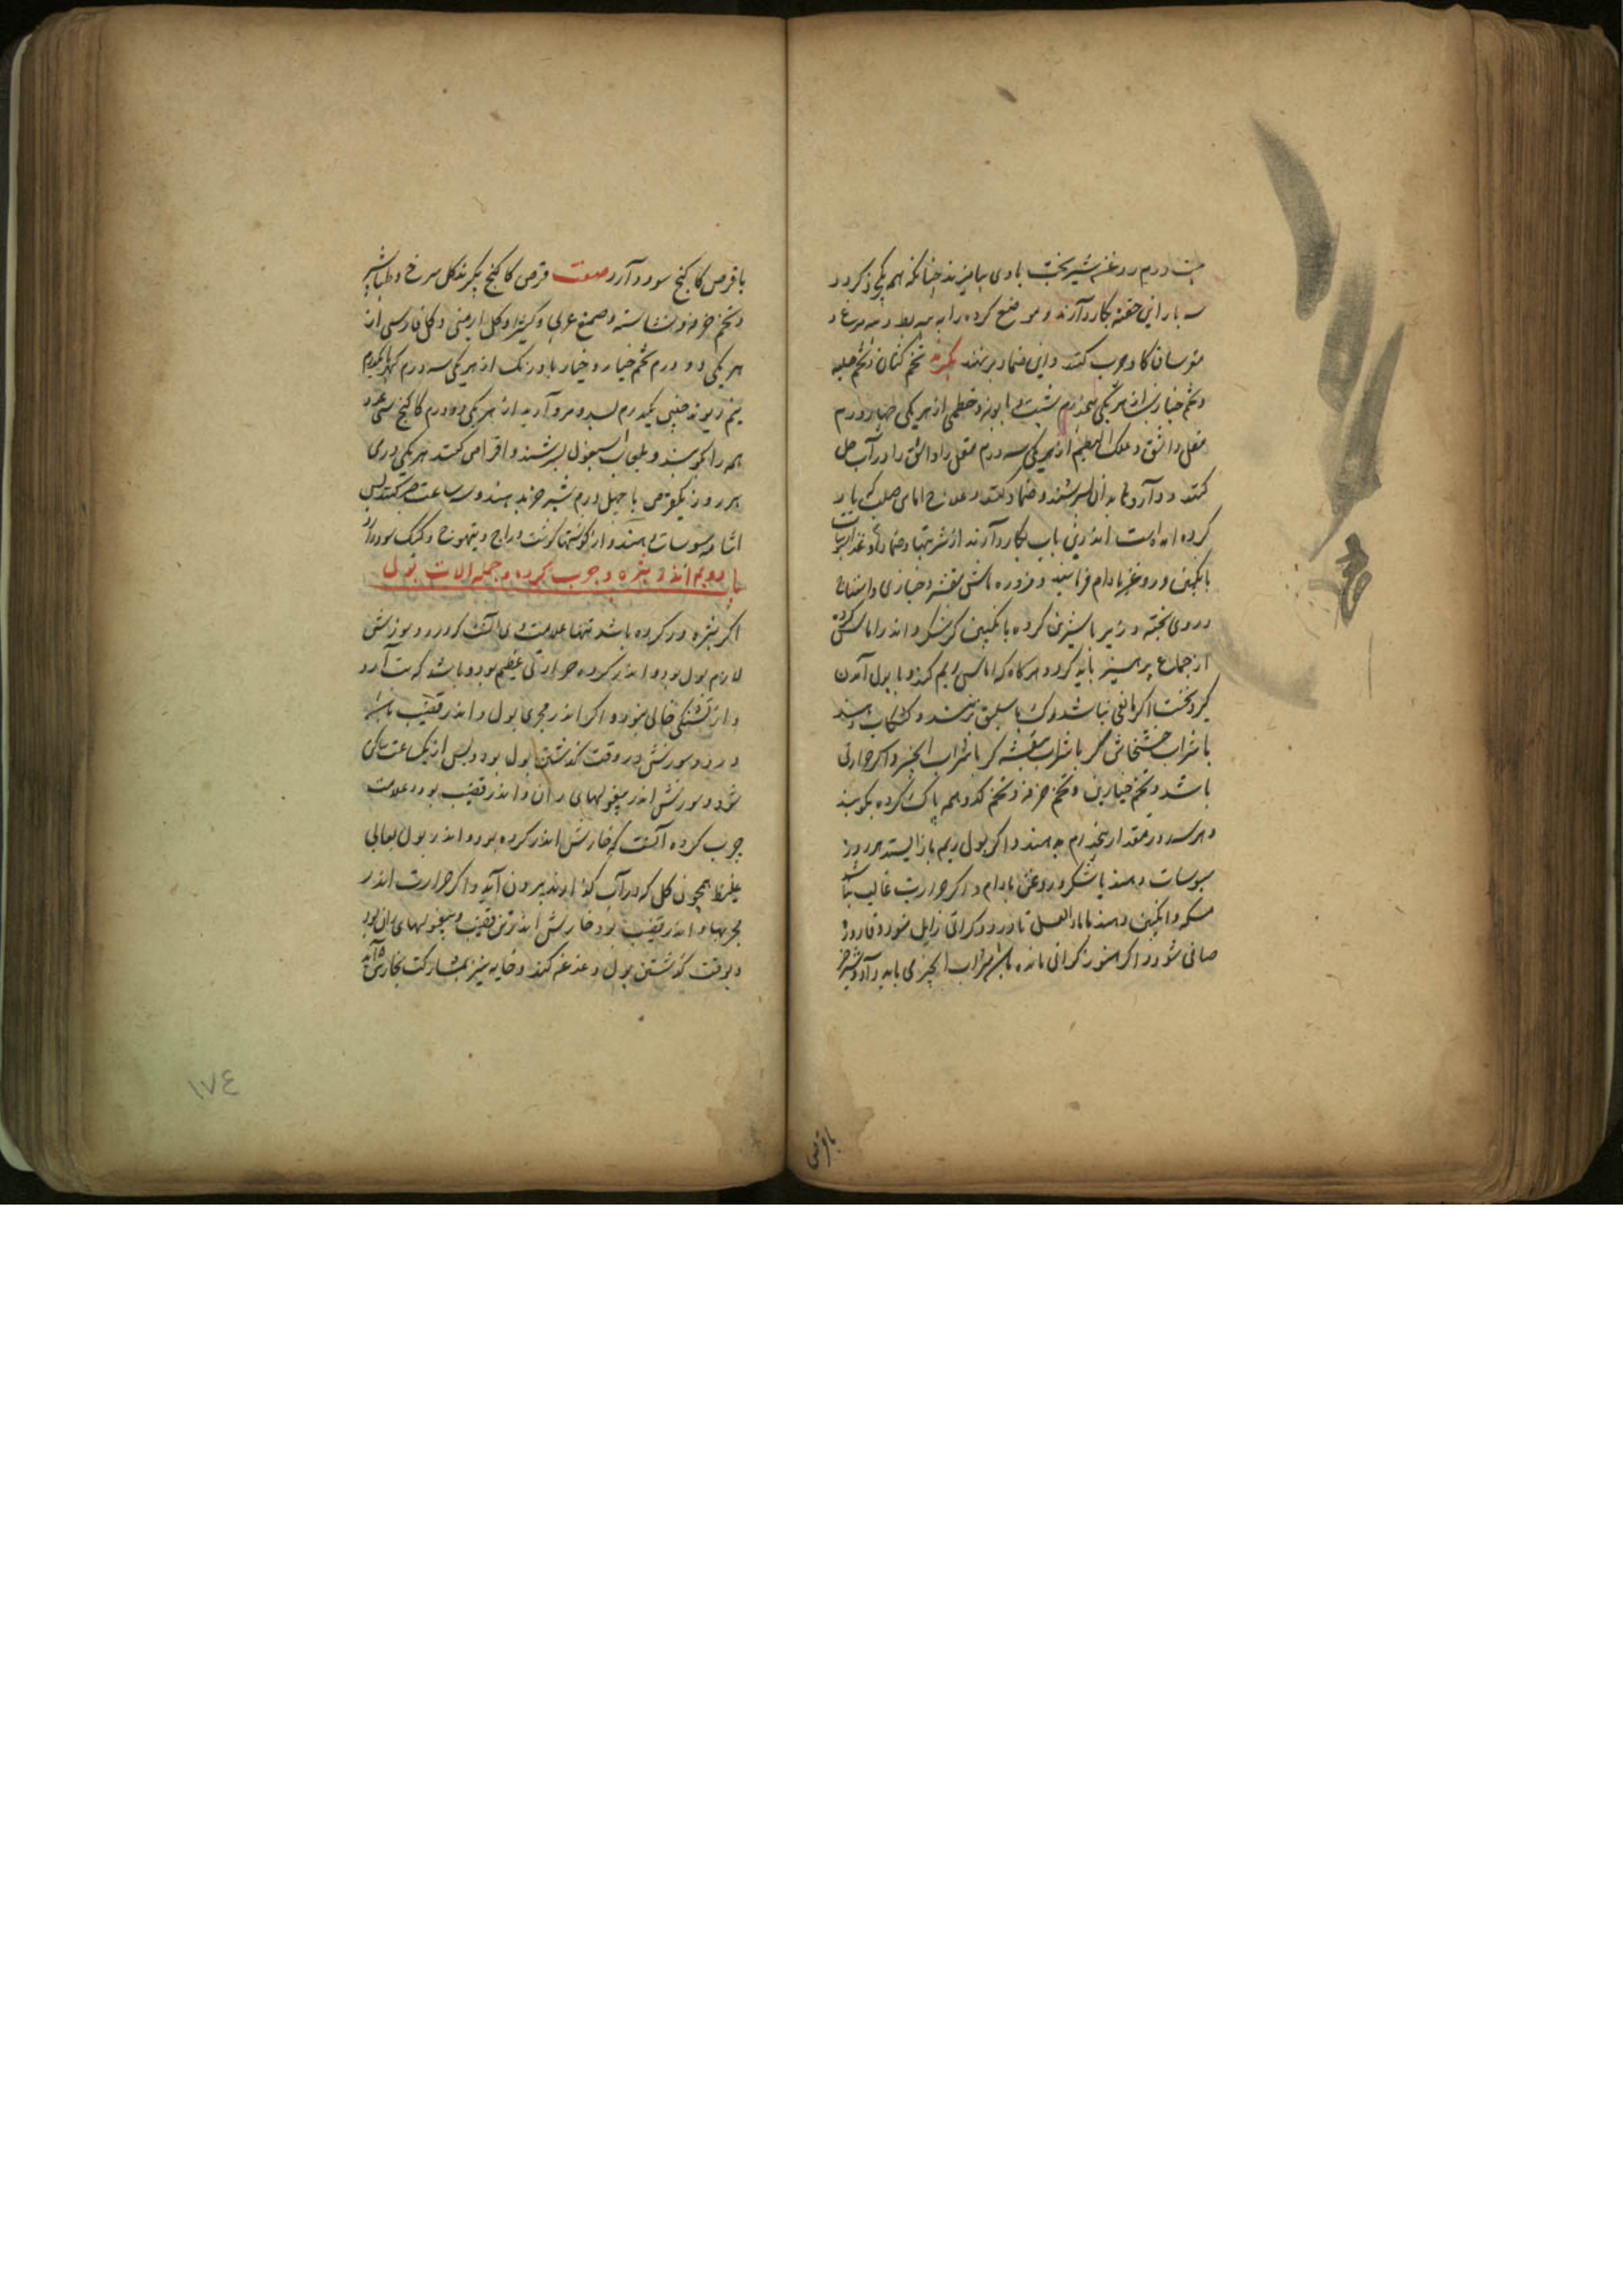 بیست درم روغن شیربخت با وی بیامیزند چنانکه همه یکی ذکر و در
سه بار این حقنه بکار دآرند و موضع کرده را به پیه بط و پیه مرغ و
مغز ساق کاو چرب کنند و این ضماد برنهند بکیرند تخم کتان و تخم حلبه
و تخم خبازی از هر یکی پنجدرم شبت و بابونه و خطمی از هر یکی چهار درم
مقل و اشق و علک البطم از هر یکی سه درم مقل و اشق را در آب حل
کنند و داروها بدان بسرشند و ضماد کنند و علاج اماس صلب که یاد
کرده امده است اندرین باب بکار دآرند از شربتها و ضمادها و غذا
بانکبین و روغن بادام فرمایند و مزوره ماش بنفشه و خبازی و اسفناخ
در وی پخته و زیرباشیرین کرده بانکبین کر شکر و اندر اماس کرده
از جماع پرهیز باید کرد و هرکاه که اماس ریم کند و با بول آمدن
کیرد نخست اکر مانعی نباشد رک باسلیق بزنند و کشکاب دهند
با شراب خشخاش کر با شراب بنفشه کر با شراب انجیر و اکر حرارتی
باشد و تخم خیارین و تخم خرفه و تخم کدو همه پاک کرده بکوبند
و هر روز مقدار پنجدرم بدهند و اکر بول ریم باز ایستد هر روز
سبوسات دهند با شکر و روغن بادام و اکر حرارت غالب نباشد
مسکه و انکبین دهند با ماء العسل تا درد و کرانی زایل شود و قاروره
صافی شود و اکر هنوز کرانی مانده باشد شراب انجیر می باید داد و شیر خر
با قرص
با قرص کاکنج سود دآرد صفت قرص کاکنج بکیرند کل سرخ و طباشیر
و تخم خرفه و نشاسته و صمغ عربی و کتیرا و کل ارمنی و کل فارسی از
هر یکی دو درم تخم خیار و خیار بادرنک از هر یکی سه درم کهربا یکدرم
نیم ریوند چینی یکدرم بسد و مروآرید از هر یکی دو درم کاکنج سی عدد
همه را بکوبند و بلعاب اسبغول بسرشند و اقراص کنند هر یکی درمی
هر روز یکقرص با چهل درم شیر خر بدهند و سه ساعت صبر کنند پس
اشامه سبوسات دهند و از کوشتها کوشت دراج و تیهوج و کبک سود دارد
باب دویم اندر بثره و جرب کرده و جمله الات بول
اکر بثره در کرده باشد تنها علامت وی آنست که درد و سوزش
لازم بول بود و اندر کرده حرارتی عظیم بود و باشد که تب آرد
و از تشنکی خالی نبود و اکر اندر مجری بول و اندر قضیب باشد
درد و سوزش در وقت کذشتن بول بود و پس از یک ساعت ساکن
شود و سوزش اندر بیغولهای ران و اندر قضیب بود و علامت
جرب کرده آنست که خارش اندر کرده بود و اندر بول لعابی
غلیظ همچون کل که در آب کذارند بیرون آید و اکر حرارت اندر
مجریها و اندر قضیب بود خارش اندر تن قضیب و بیغولهای ران بود
و بوقت کذشتن بول دغدغه کند و خایه نیز بمشارکت بخارش آید
١٧٤